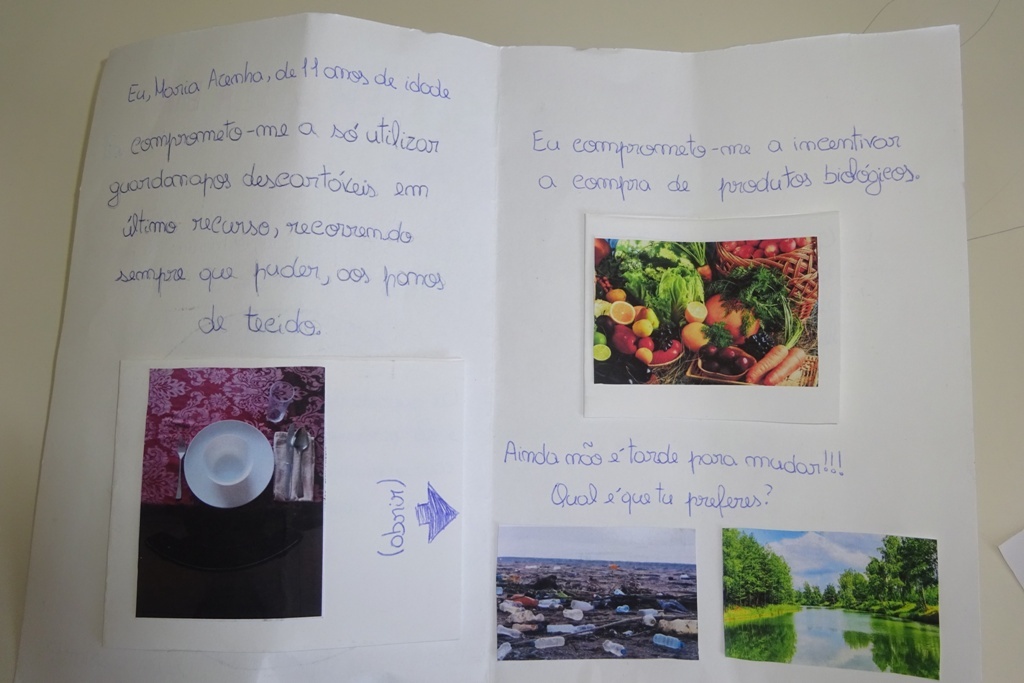 Eu, Maria Acenha, de 11 anos de idade
comprometo-me a só utilizar
guardanapos descartáveis em
último recurso, recorrendo
sempre que puder, aos panos
de tecido.
(abrir)
Eu comprometo-me a incentivar
a compra de produtos biológicos.
Ainda não é tarde para mudar!!!
Qual é que tu preferes?